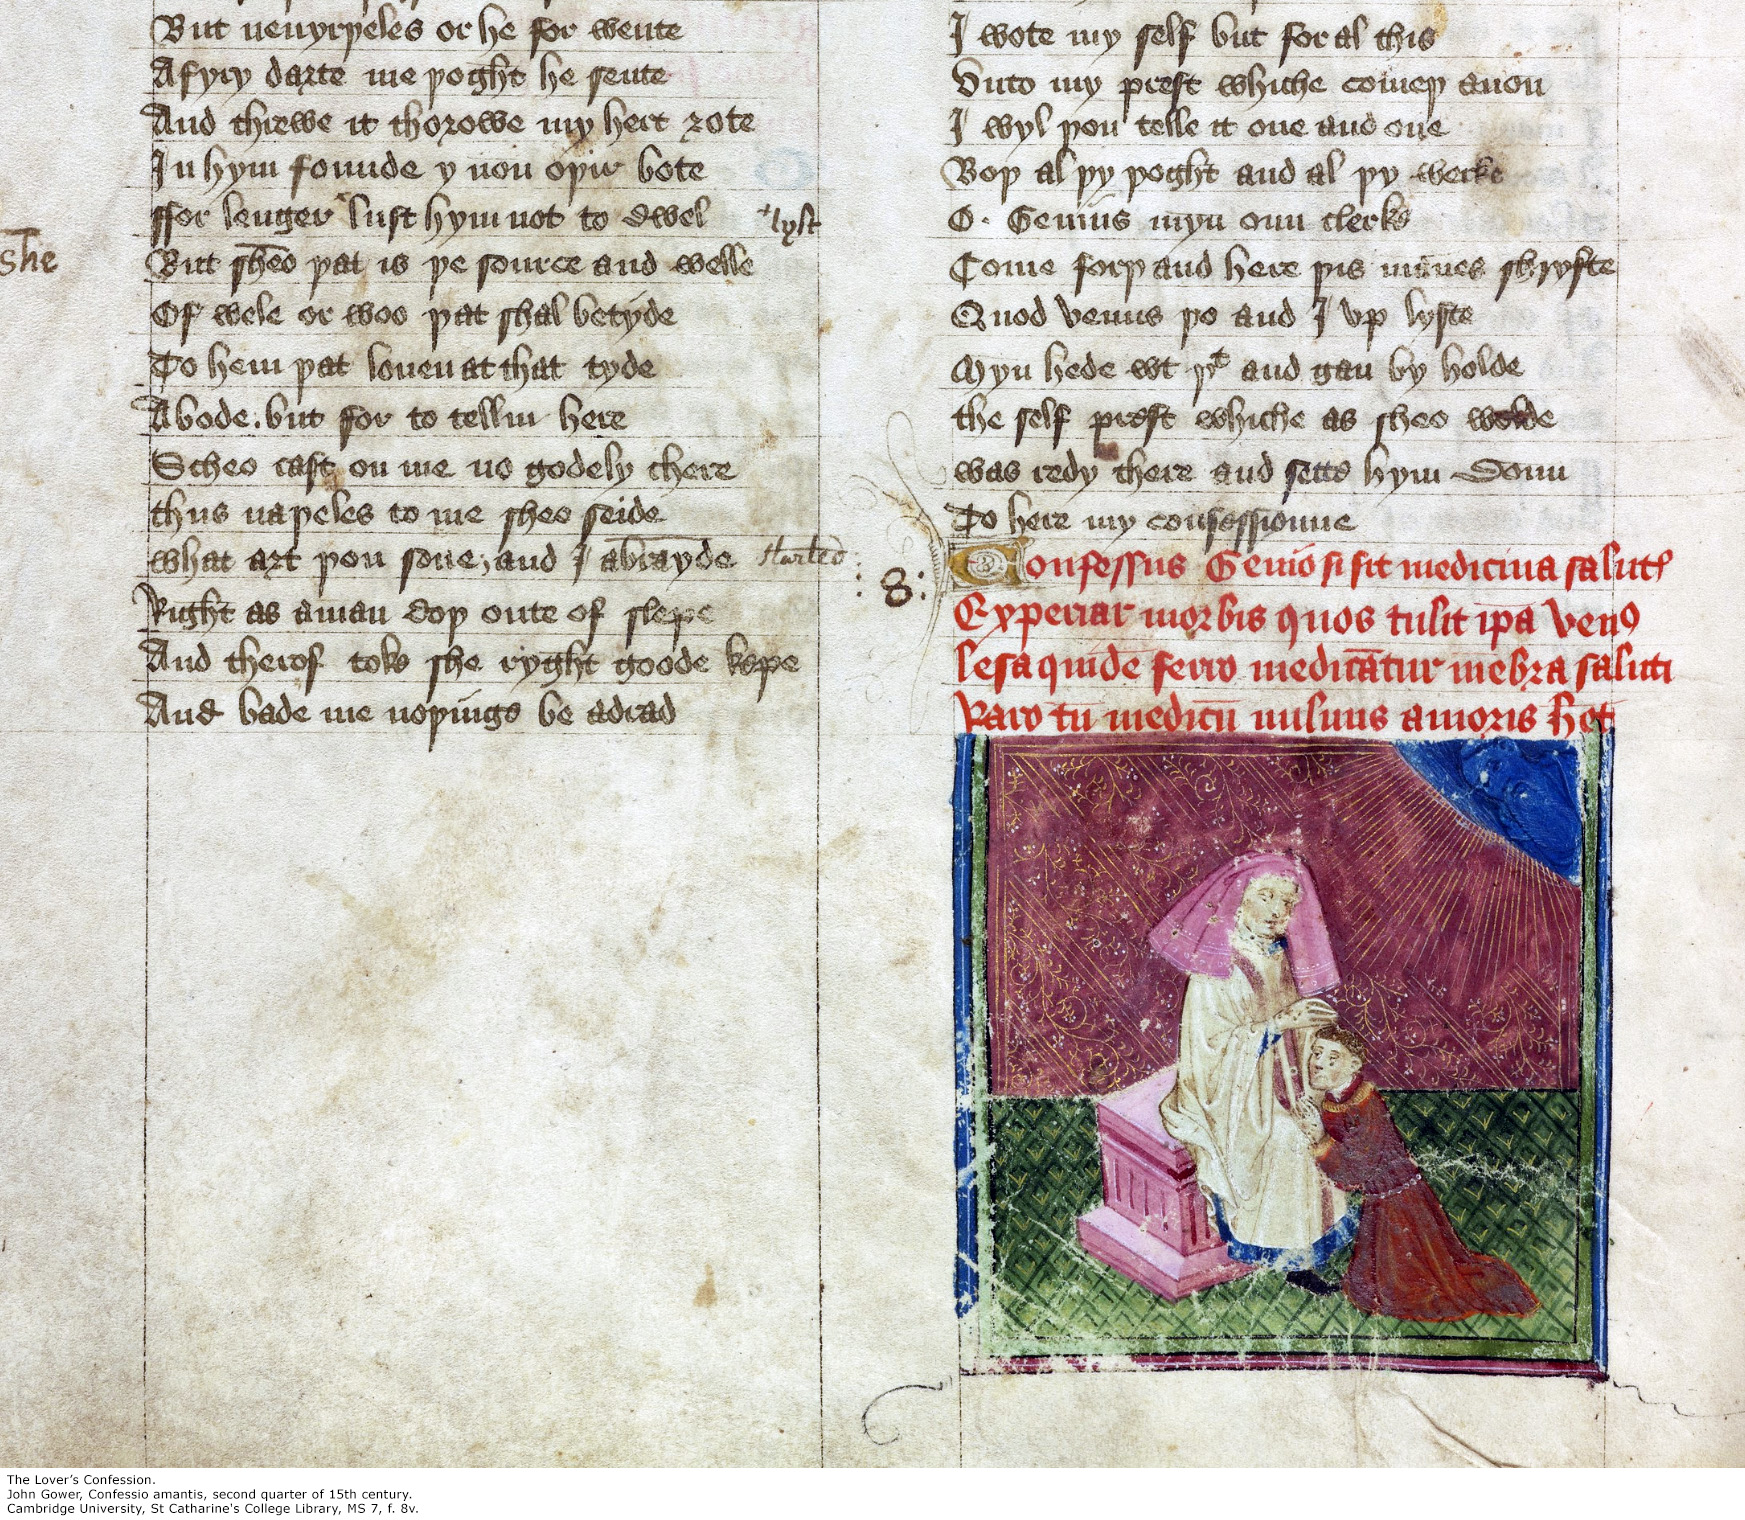 But neuyrþeles or he for wente
A fyry darte me þoght he sente
And threwe it thorowe my hert rote
In hym founde y non oþir bote
ffor lenger lust hym not to dwel
lyst
She
But sheo þat is þe source and welle
Of wele or woo þat shal betyde
To hem þat louen at that tyde
Abode. but for to tellin here
Scheo cast on me no godely chere
thus naþeles to me sheo seide
what art þou sone, and I abrayde
startled
Right as aman doþ oute of slepe
And therof toke she ryght goode kepe
And bade me noþinge be adrad
I wote my self but for al this
Vnto my prest whiche comeþ anon
I wyl þou telle it one and one
Boþ al þy þoght and al þy werke
O. Genius myn oun clerke
Come forþ and here þis mannes shryfte
Quod venus þo and I vp lyfte
Myn hede wt þt and gan by holde
the self prest whiche as sheo wolde
was redy there and sette hym doun
To here my confessioune
:8:
Confessus Genio si sit medicina salut
Experiar morbis quos tulit ipa Ven9
lesa quidē ferro medicātur mēbra saluti
Raro tū medicū vulnus amoris het
The Lover's Confession.
John Gower, Confessio amantis, second quarter of 15th century.
Cambridge University, St Catharine's College Library, MS 7, f. 8v.